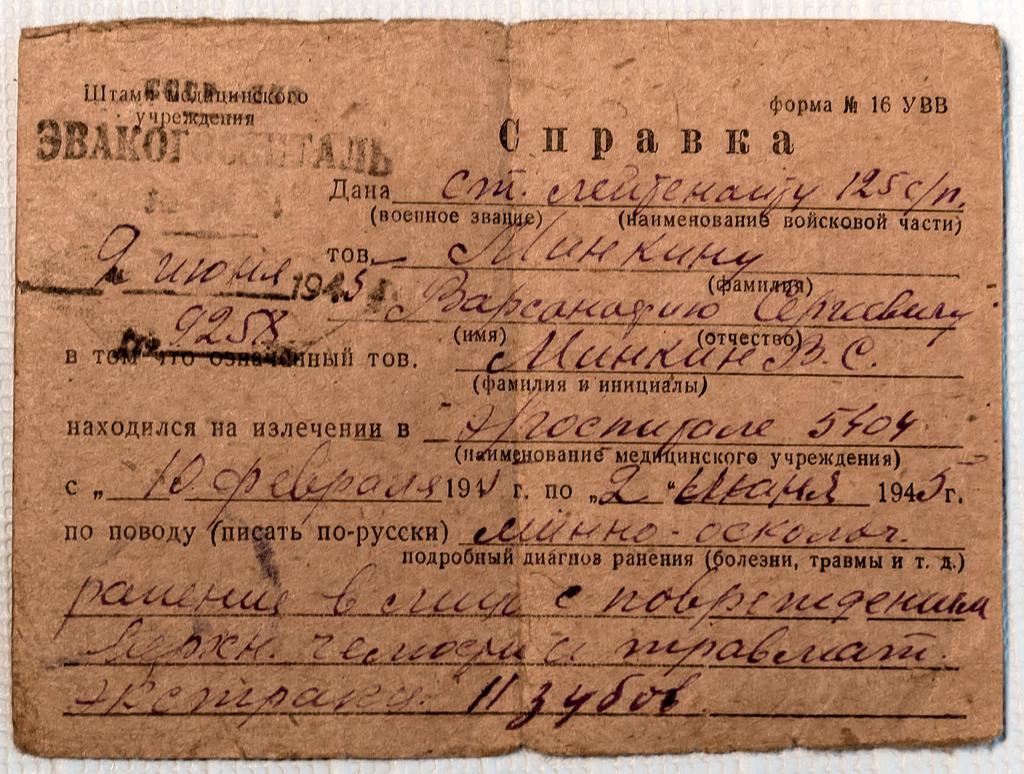 Штамп медицинского
учреждения
форма № 16 УВВ
ЭВАКОГОСПИТАЛЬ
Справка
Дана ст. лейтенанту 125 с/п.
(военное звание) (наименование войсковой части)
тов. Минкину
(фамилия)
2 июня 1945
Варсанофию Сергеевичу
(имя) (отчество)
№ 9258
в том что означенный тов. Минкин В. С.
(фамилия и инициалы)
находился на излечении в Э/госпитале 5404
(наименование медицинского учреждения)
с „ 10 февраля 1945 г. по „2 " июня 1945 г.
по поводу (писать по-русски) минно-осколоч.
подробный диагноз ранения (болезни, травмы и т. д.)
ранение в лице с повреждением
верхн. челюсти и травмат.
экстракц. 11 зубов.